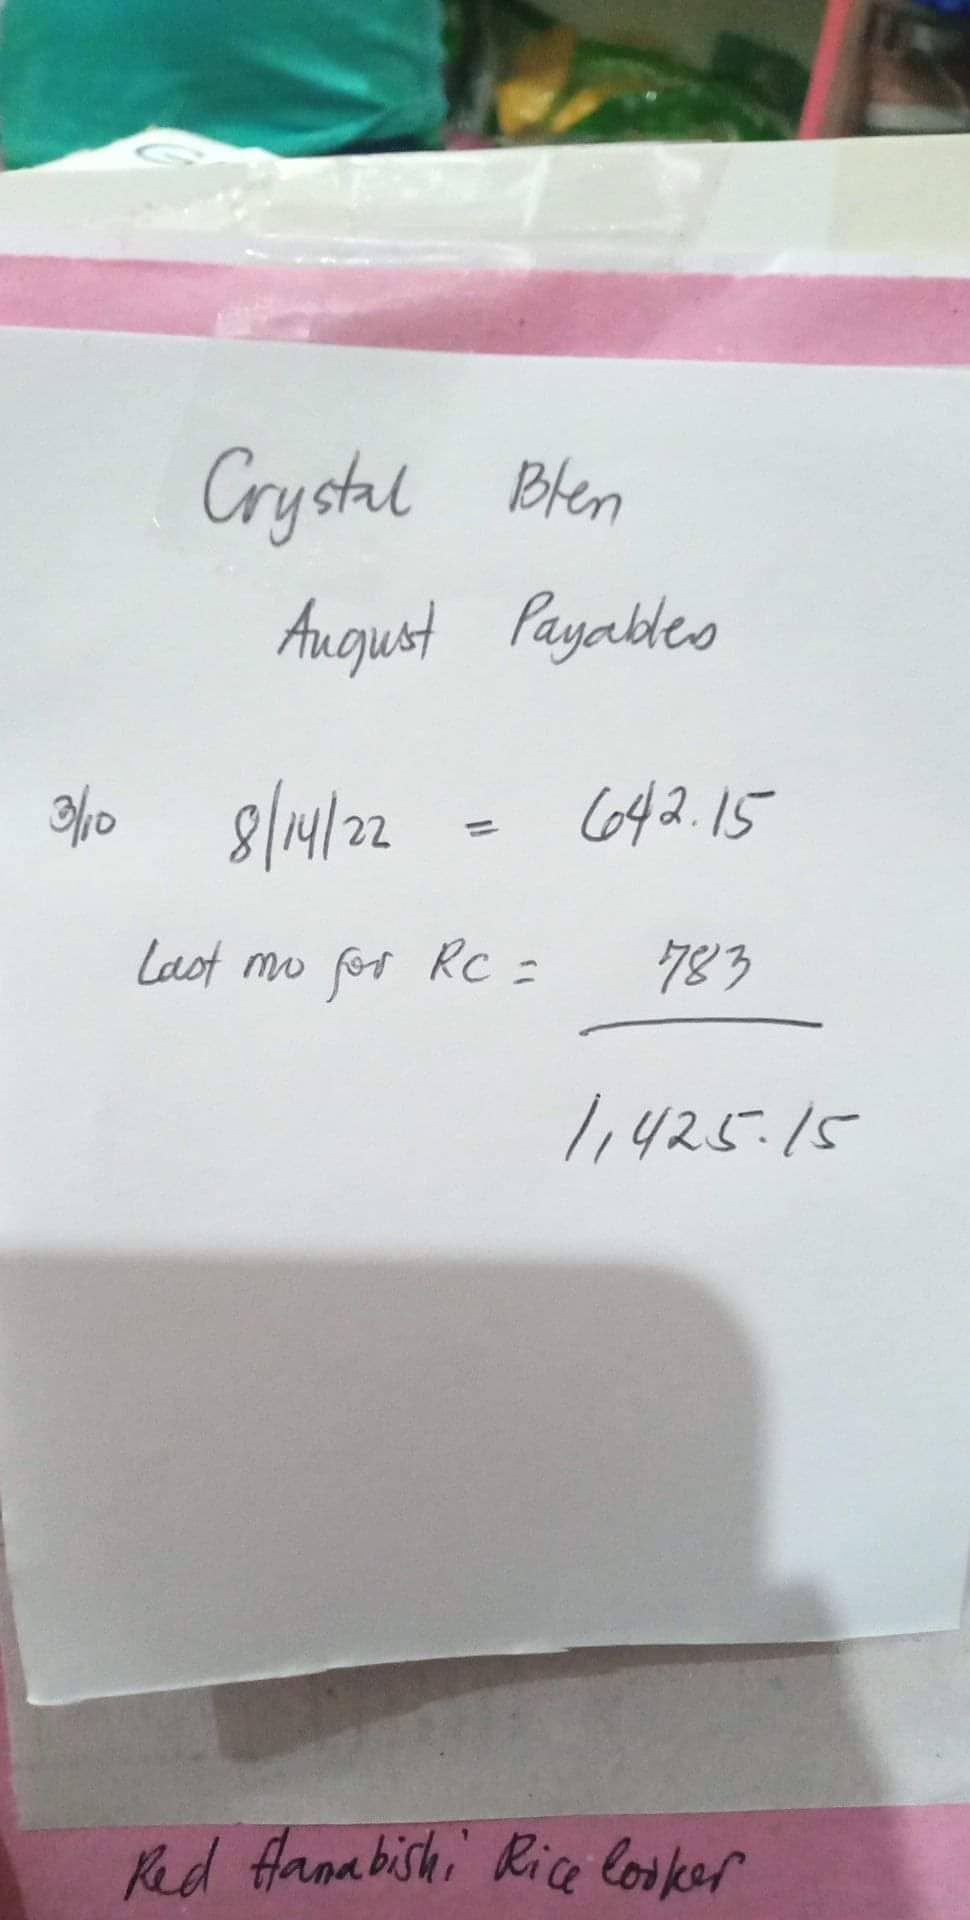 Crystal Bten
August Payables
3/10 8/14/22 = 642.15
Last mo for RC = 783
1,425.15
Red Hanabishi Rice Cooker